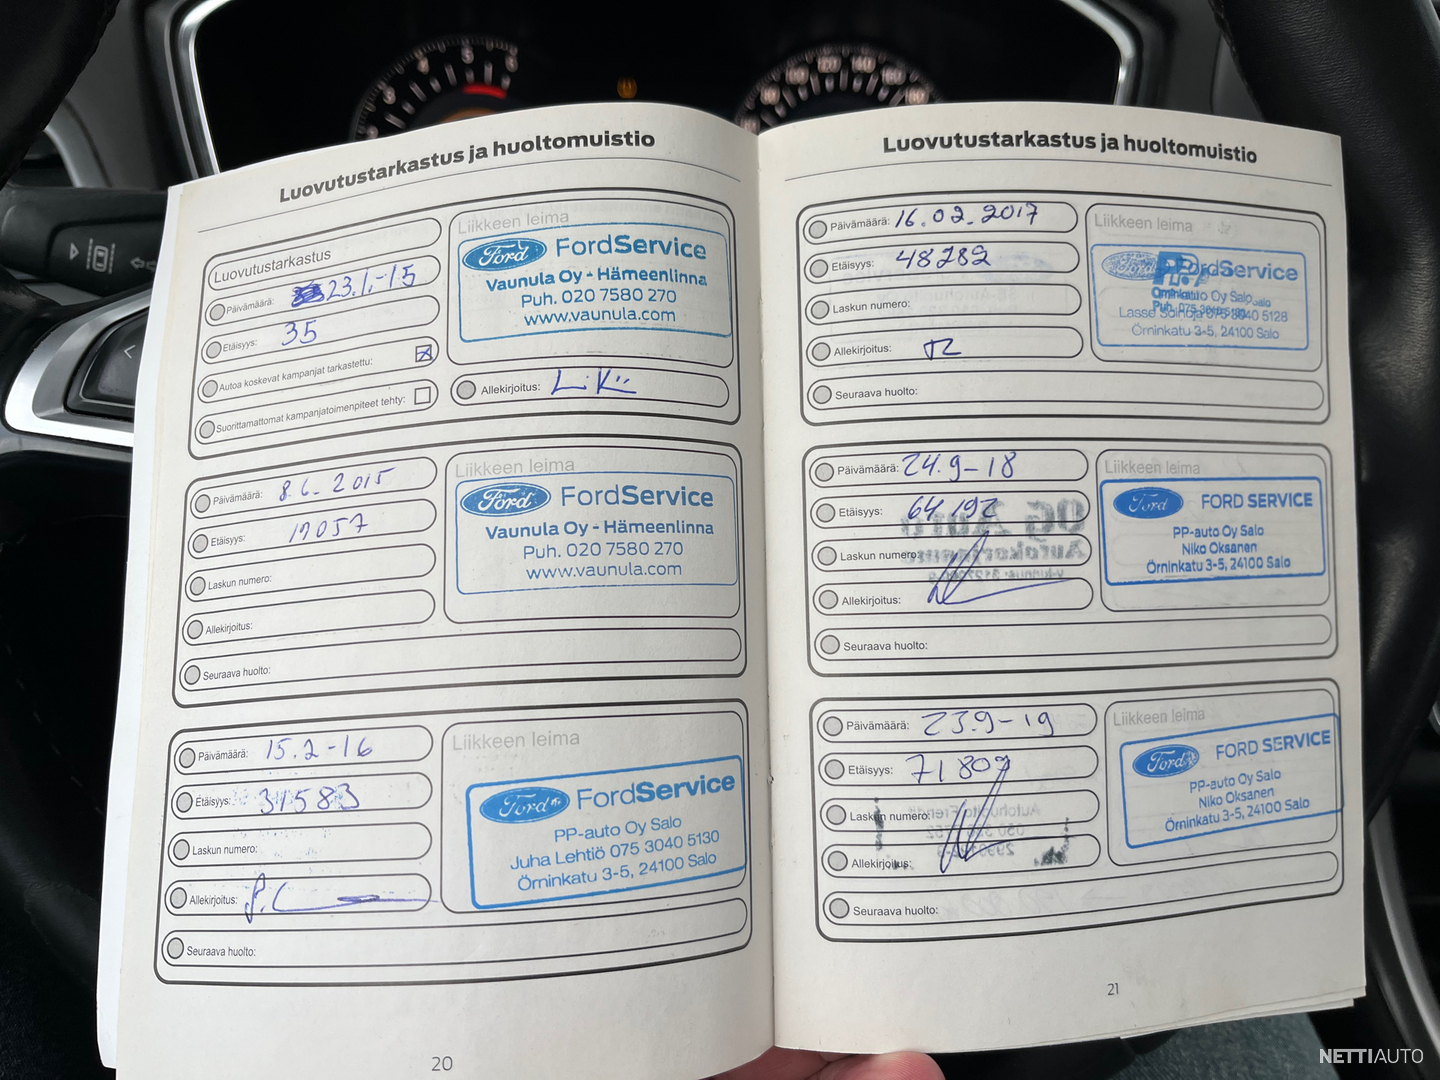 Luovutustarkastus ja huoltomuistio
Luovutustarkastus
Päivämäärä: 23.1.-15
Etäisyys: 35
Autoa koskevat kampanjat tarkastettu:
Suorittamattomat kampanjatoimenpiteet tehty:
Liikkeen leima
Ford FordService
Vaunula Oy - Hämeenlinna
Puh. 020 7580 270
www.vaunula.com
Allekirjoitus:
Päivämäärä: 8.6-2015
Etäisyys: 17057
Laskun numero:
Allekirjoitus:
Seuraava huolto:
Liikkeen leima
Ford FordService
Vaunula Oy - Hämeenlinna
Puh. 020 7580 270
www.vaunula.com
Päivämäärä: 15.2-16
Etäisyys: 31583
Laskun numero:
Allekirjoitus:
Seuraava huolto:
Liikkeen leima
Ford FordService
PP-auto Oy Salo
Juha Lehtiö 075 3040 5130
Örninkatu 3-5, 24100 Salo
20
Luovutustarkastus ja huoltomuistio
Päivämäärä: 16.02.2017
Etäisyys: 48282
Laskun numero:
Allekirjoitus:
Seuraava huolto:
Liikkeen leima
Ford FordService
Oy Salo
Lasse 5128
Örninkatu 3-5, 24100 Salo
Päivämäärä: 24.9-18
Etäisyys: 64192
Laskun numero:
Allekirjoitus:
Seuraava huolto:
Liikkeen leima
Ford FORD SERVICE
PP-auto Oy Salo
Niko Oksanen
Örninkatu 3-5, 24100 Salo
Päivämäärä: 23.9-19
Etäisyys: 71809
Laskun numero:
Allekirjoitus:
Seuraava huolto:
Liikkeen leima
Ford FORD SERVICE
PP-auto Oy Salo
Niko Oksanen
Örninkatu 3-5, 24100 Salo
21
NETTIAUTO